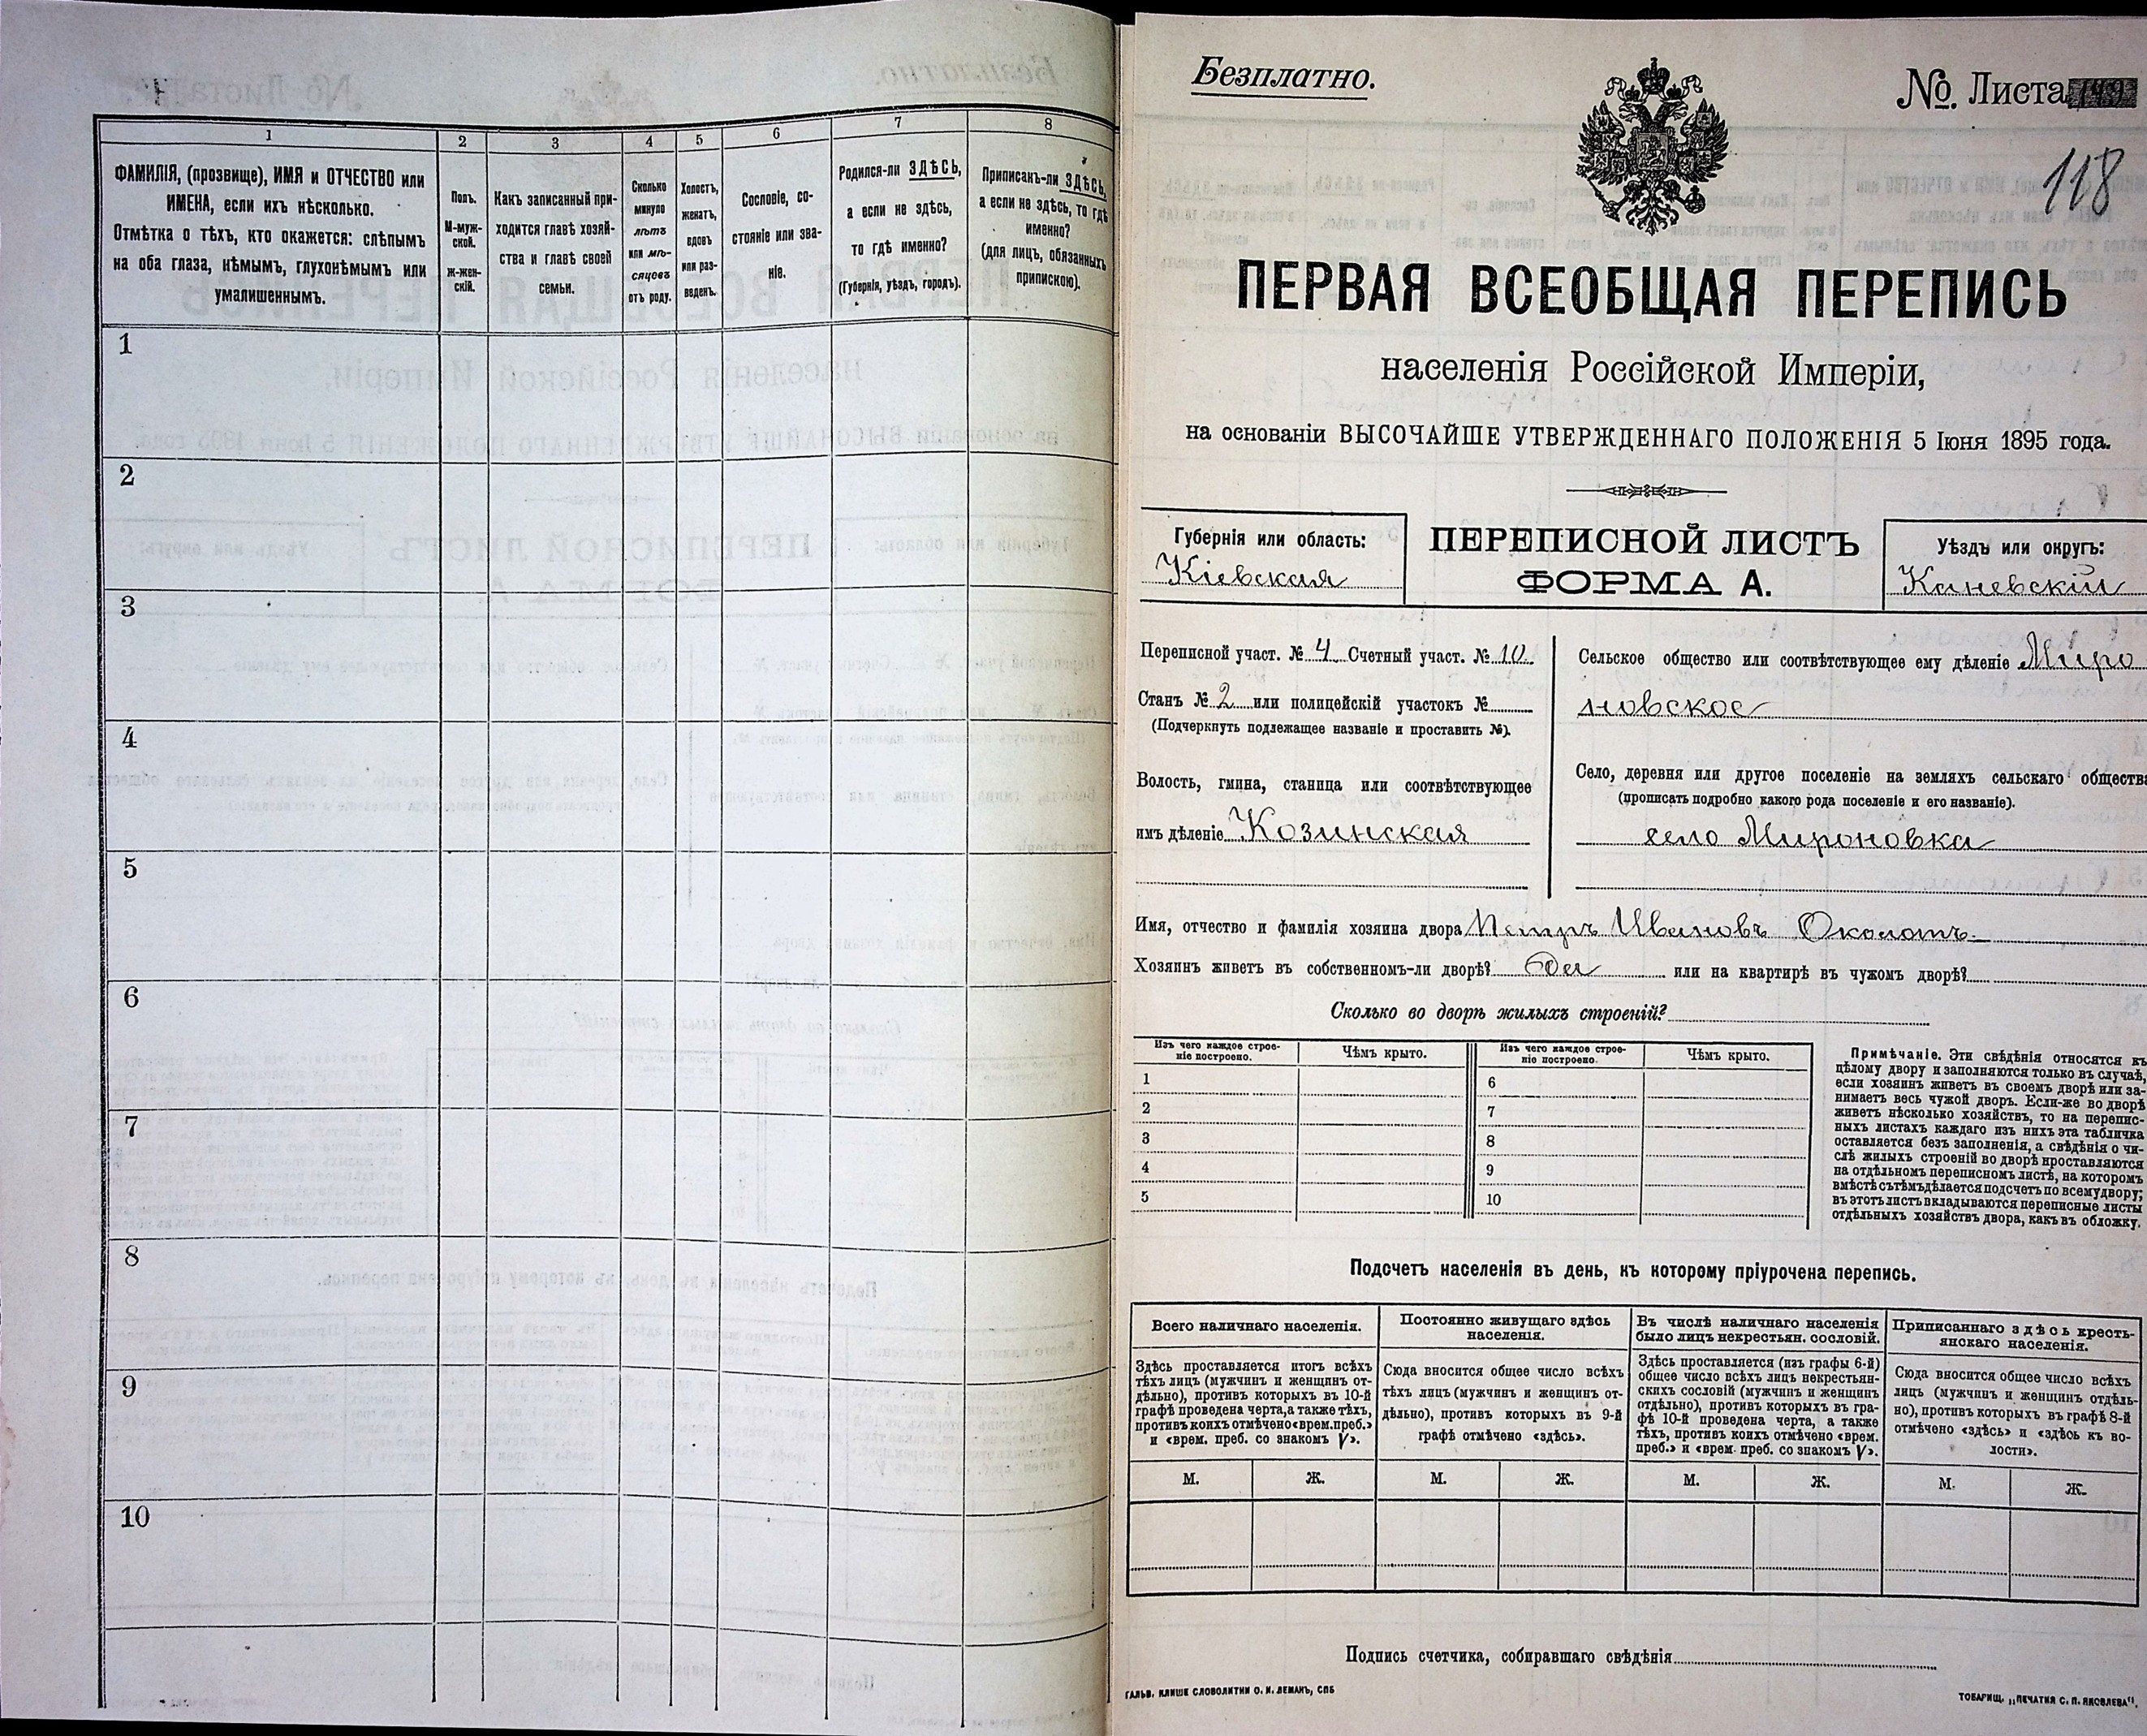 1
2
3
4
5
6
7
8
ФАМИЛІЯ, (прозвище), ИМЯ и ОТЧЕСТВО или
ИМЕНА, если ихъ нѣсколько.
Отмѣтка о тѣхъ, кто окажется: слѣпымъ
на оба глаза, нѣмымъ, глухонѣмымъ или
умалишеннымъ.
Полъ.
М-муж-
ской.
Ж-жен-
скій.
Какъ записанный при-
ходится главѣ хозяй-
ства и главѣ своей
семьи.
Сколько
минуло
лѣтъ
или мѣ-
сяцевъ
отъ роду.
Холостъ,
женатъ,
вдовъ
или раз-
веденъ.
Сословіе, со-
стояніе или зва-
ніе.
Родился-ли ЗДѢСЬ,
а если не здѣсь,
то гдѣ именно?
(Губернія, уѣздъ, городъ).
Приписанъ-ли ЗДѢСЬ,
а если не здѣсь, то гдѣ
именно?
(для лицъ, обязанныхъ
припискою).
1
2
3
4
5
6
7
8
9
10
Безплатно.
№. Листа
118
ПЕРВАЯ ВСЕОБЩАЯ ПЕРЕПИСЬ
населенія Россійской Имперіи,
на основаніи ВЫСОЧАЙШЕ УТВЕРЖДЕННАГО ПОЛОЖЕНІЯ 5 Іюня 1895 года.
Губернія или область:
Кіевская
ПЕРЕПИСНОЙ ЛИСТЪ
ФОРМА А.
Уѣздъ или округъ:
Каневскій
Переписной участ. № 4 Счетный участ. № 10
Станъ № 2 или полицейскій участокъ №
(Подчеркнуть подлежащее названіе и проставить №).
Волость, гмина, станица или соотвѣтствующее
имъ дѣленіе Козинская
Сельское общество или соотвѣтствующее ему дѣленіе Миро
новское
Село, деревня или другое поселеніе на земляхъ сельскаго общества
(прописать подробно какого рода поселеніе и его названіе).
село Мироновка
Имя, отчество и фамилія хозяина двора Петръ Ивановъ Околотъ
Хозяинъ живетъ въ собственномъ-ли дворѣ? Да или на квартирѣ въ чужомъ дворѣ?
Сколько во дворѣ жилыхъ строеній?
Изъ чего каждое строе-
ніе построено.
Чѣмъ крыто.
Изъ чего каждое строе-
ніе построено.
Чѣмъ крыто.
1
2
3
4
5
6
7
8
9
10
Примѣчаніе. Эти свѣдѣнія относятся къ
цѣлому двору и заполняются только въ случаѣ,
если хозяинъ живетъ въ своемъ дворѣ или за-
нимаетъ весь чужой дворъ. Если-же во дворѣ
живетъ нѣсколько хозяйствъ, то на перепис-
ныхъ листахъ каждаго изъ нихъ эта табличка
оставляется безъ заполненія, а свѣдѣнія о чи-
слѣ жилыхъ строеній во дворѣ проставляются
на отдѣльномъ переписномъ листѣ, на которомъ
вмѣстѣ съ тѣмъ дѣлается подсчетъ по всему двору;
въ этотъ листъ вкладываются переписные листы
отдѣльныхъ хозяйствъ двора, какъ въ обложку.
Подсчетъ населенія въ день, къ которому пріурочена перепись.
Всего наличнаго населенія.
Здѣсь проставляется итогъ всѣхъ
тѣхъ лицъ (мужчинъ и женщинъ от-
дѣльно), противъ которыхъ въ 10-й
графѣ проведена черта, а также тѣхъ,
противъ коихъ отмѣчено «врем. преб.»
и «врем. преб. со знакомъ V».
Постоянно живущаго здѣсь
населенія.
Сюда вносится общее число всѣхъ
тѣхъ лицъ (мужчинъ и женщинъ от-
дѣльно), противъ которыхъ въ 9-й
графѣ отмѣчено «здѣсь».
Въ числѣ наличнаго населенія
было лицъ некрестьян. сословій.
Здѣсь проставляется (изъ графы 6-й)
общее число всѣхъ лицъ некрестьян-
скихъ сословій (мужчинъ и женщинъ
отдѣльно), противъ которыхъ въ гра-
фѣ 10-й проведена черта, а также
тѣхъ, противъ коихъ отмѣчено «врем.
преб.» и «врем. преб. со знакомъ V».
Приписаннаго здѣсь кресть-
янскаго населенія.
Сюда вносится общее число всѣхъ
лицъ (мужчинъ и женщинъ отдѣль-
но), противъ которыхъ въ графѣ 8-й
отмѣчено «здѣсь» и «здѣсь къ во-
лости».
М.
Ж.
М.
Ж.
М.
Ж.
М.
Ж.
Подпись счетчика, собиравшаго свѣдѣнія
ГАЛЬВ. КЛИШЕ СЛОВОЛИТНИ О. И. ЛЕМАНЪ, СПБ
ТОВАРИЩ. „ПЕЧАТНЯ С. П. ЯКОВЛЕВА".